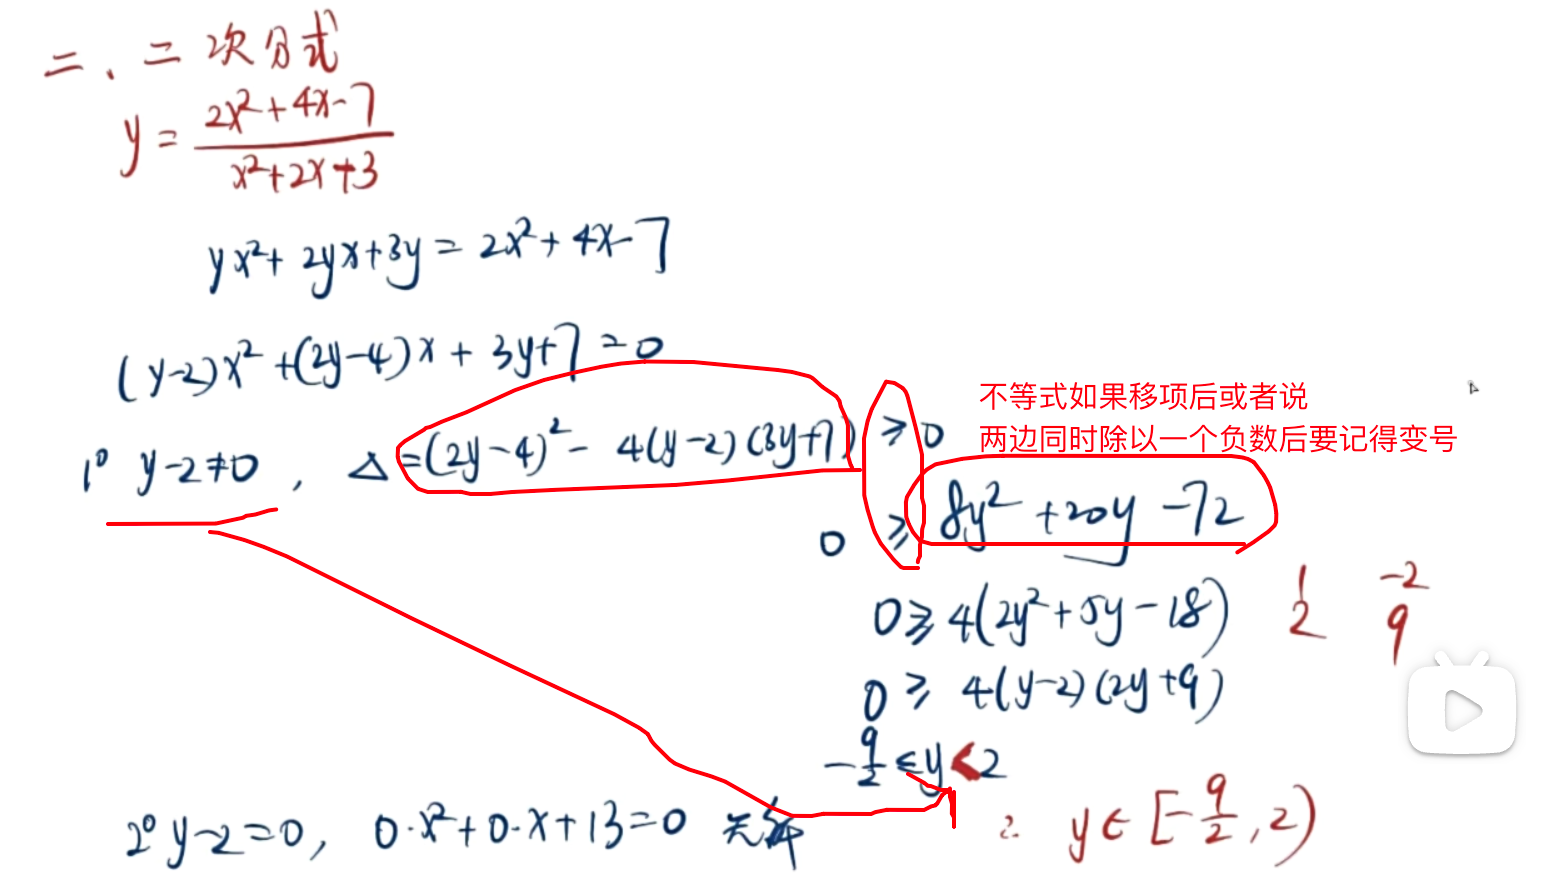 二、二次分式
y = \frac{2x²+4x-7}{x²+2x+3}
yx²+2yx+3y = 2x²+4x-7
(y-2)x²+(2y-4)x+3y+7=0
1° y-2≠0, Δ=(2y-4)²-4(y-2)(3y+7) ≥ 0
不等式如果移项后或者说
两边同时除以一个负数后要记得变号
0 ≥ 8y²+20y-72
0 ≥ 4(2y²+5y-18)
1 -2
2 9
0 ≥ 4(y-2)(2y+9)
-\frac{9}{2} ≤ y < 2
2° y-2=0, 0·x²+0·x+13=0 无解
∴ y∈[-\frac{9}{2}, 2)